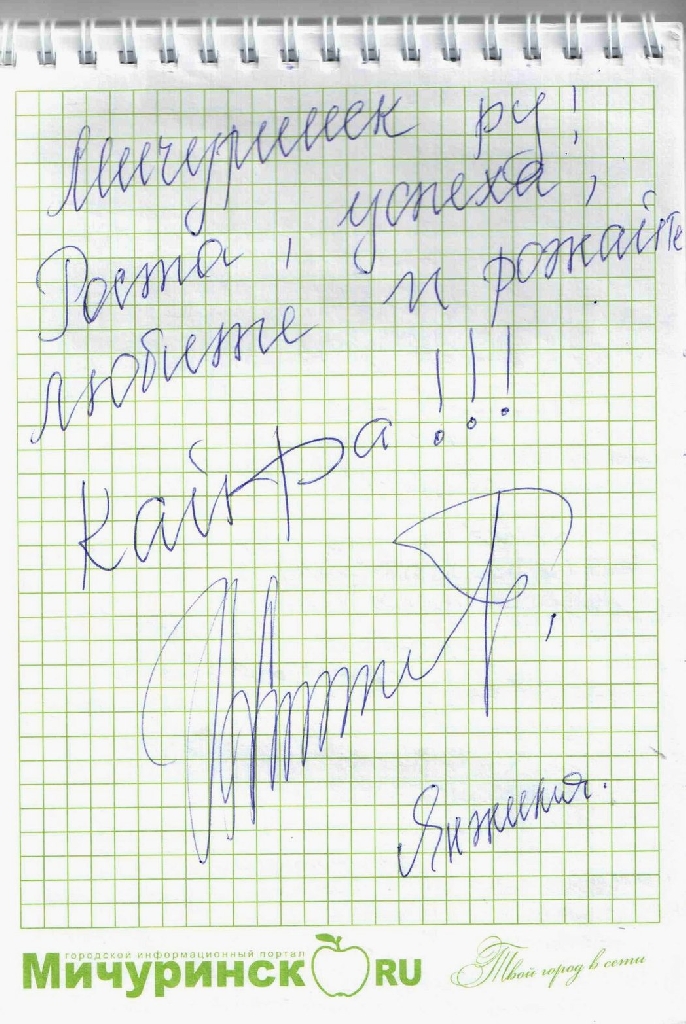 Мичуринск ру!
Роста, успеха,
любите и рожайте
Кайфа!!!
городской информационный портал
Мичуринск RU
Твой город в сети